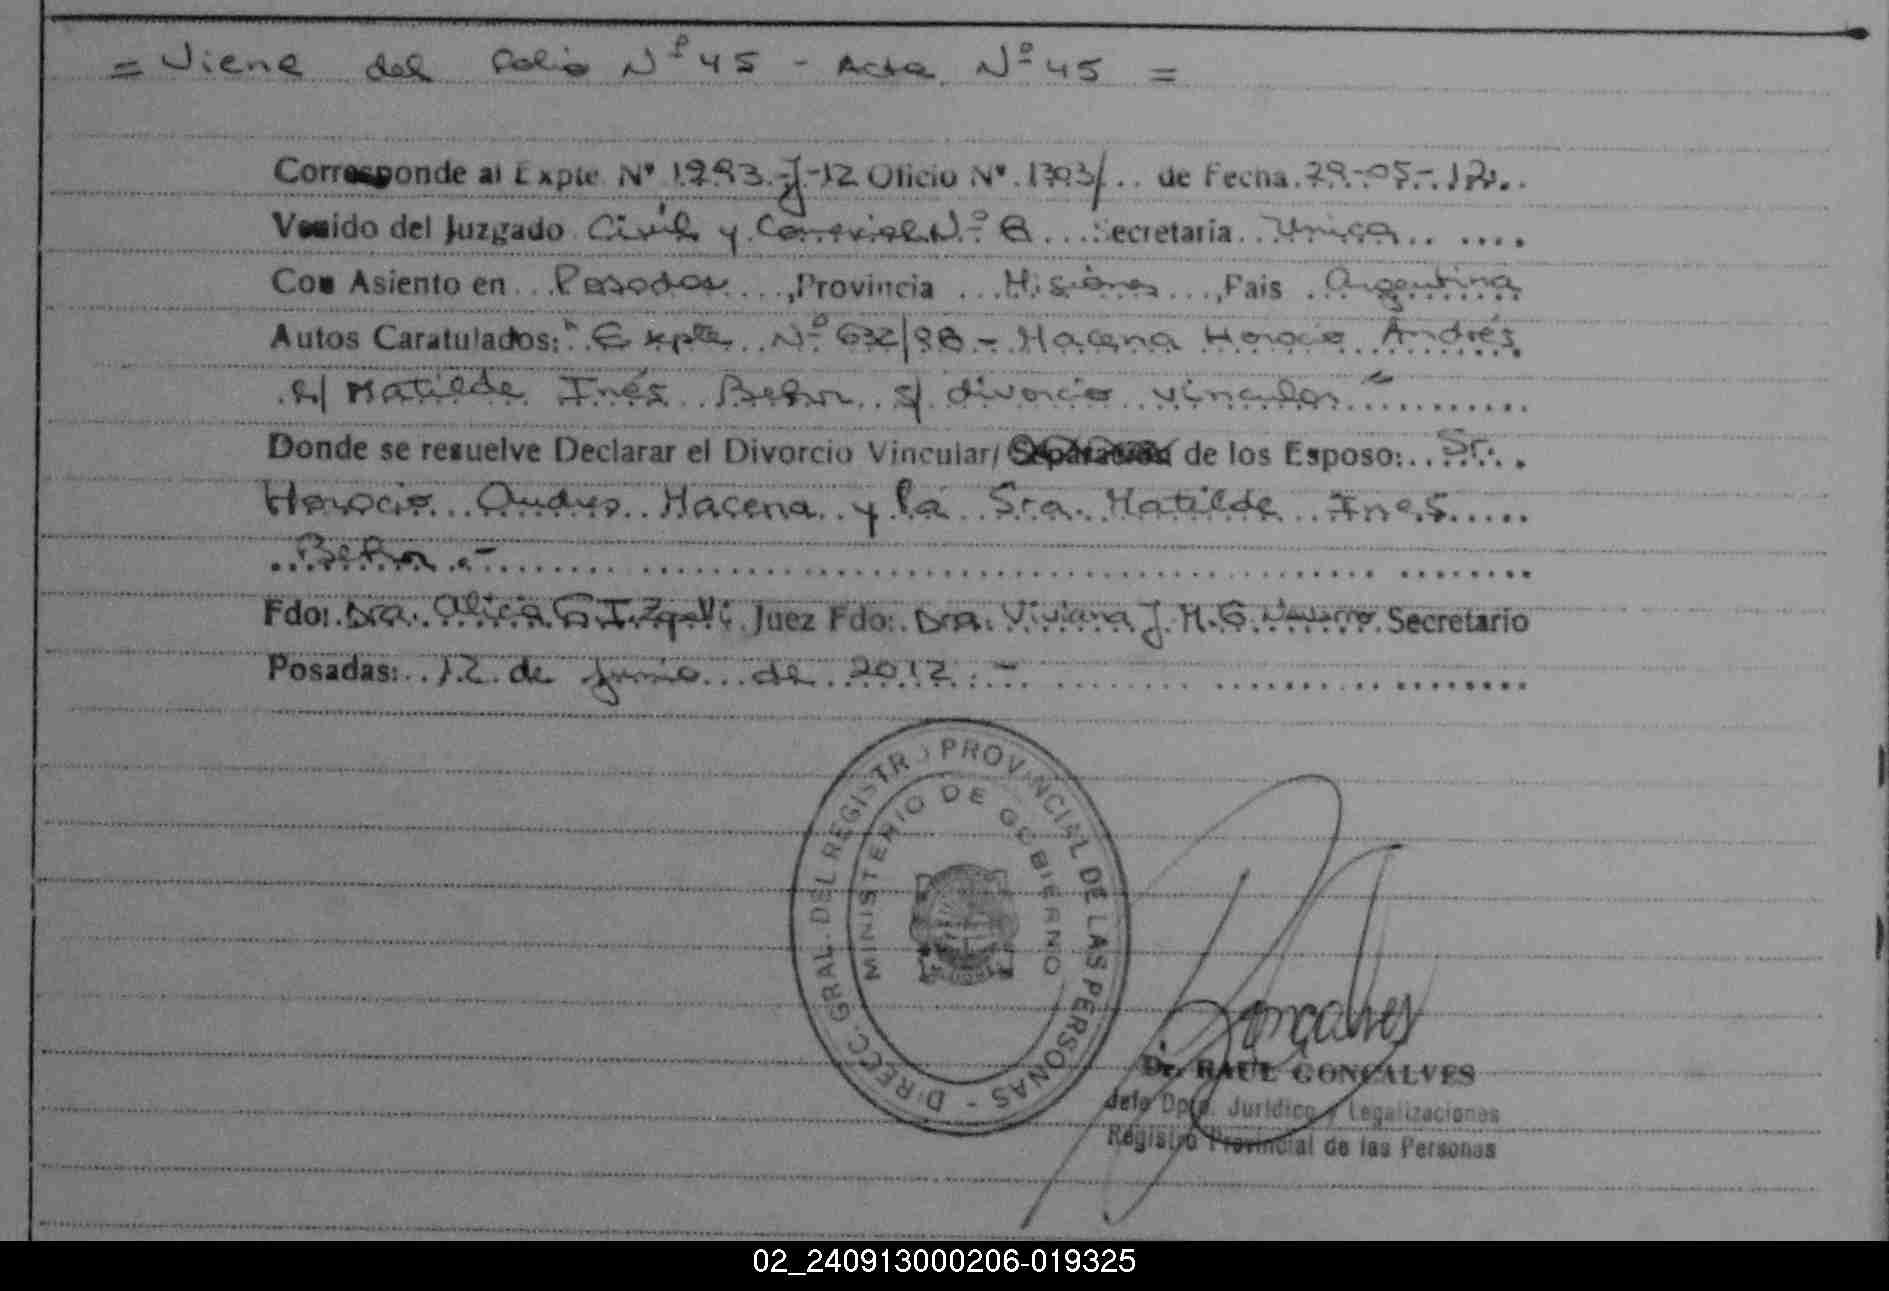 = Viene del folio Nº 45 - Acta Nº 45 =
Corresponde al Expte. Nº 1293-J-12 Oficio Nº 1303/.. de Fecha. 29-05-12..
Venido del Juzgado Civil y Comercial Nº 6 ... Secretaria.. Unica.. ....
Con Asiento en ...Posadas...., Provincia ...Misiones..., Pais .Argentina
Autos Caratulados: "Expte. Nº 632/98 - Macena Horacio Andrés
c/ Matilde Inés Behr s/ divorcio vincular"
Donde se resuelve Declarar el Divorcio Vincular/ Separacion de los Esposo:..Sr.
Horacio Andres Macena y la Sra. Matilde Ines
Behr.-
Fdo: Dra. Alicia Juez Fdo: Dra. Viviana J. M. G. Secretario
Posadas: 12 de junio de 2012.-
DIRECC. GRAL. DEL REGISTRO PROVINCIAL DE LAS PERSONAS -
MINISTERIO DE GOBIERNO
Goncalves
Dr. RAUL GONCALVES
Jefe Dpto. Jurídico y Legalizaciones
Registro Provincial de las Personas
02_240913000206-019325